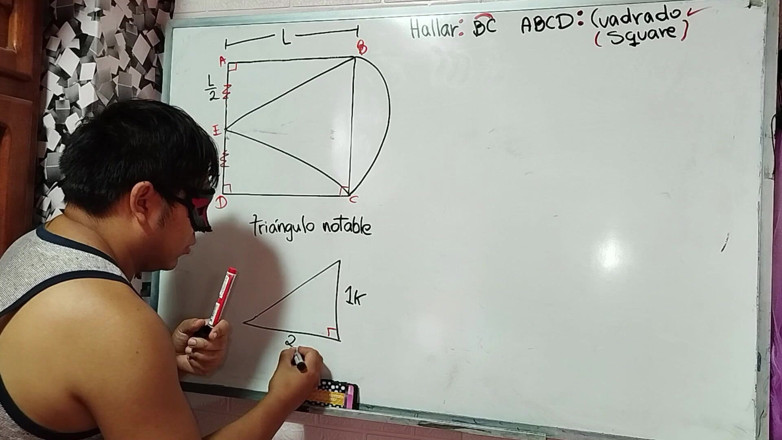 Hallar: BC ABCD: Cuadrado
(Square)
L
A B
L/2
I
D C
triángulo notable
1K
2